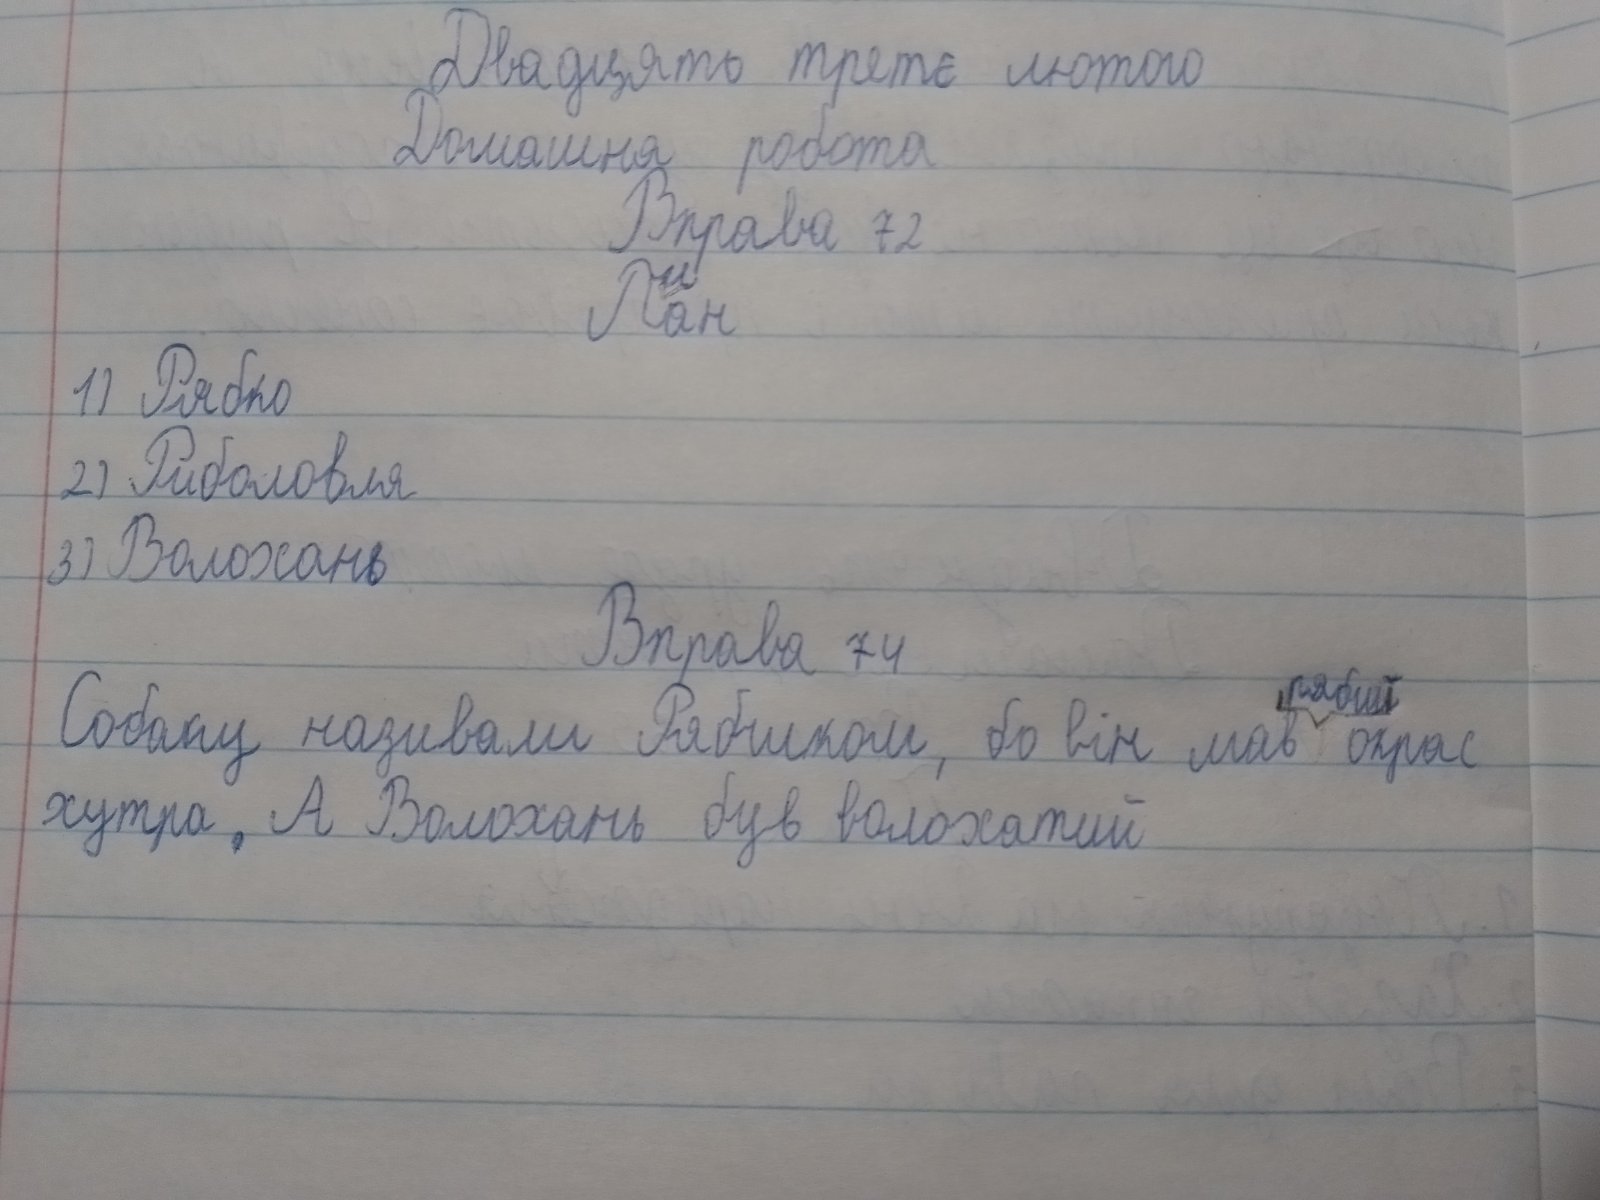 Двадцять третє лютого
Домашня робота
Вправа 72
План
1) Рябко
2) Риболовля
3) Волохань
Вправа 74
Собаку називали Рябчиком, бо він мав рябий окрас
хутра. А Волохань був волохатий